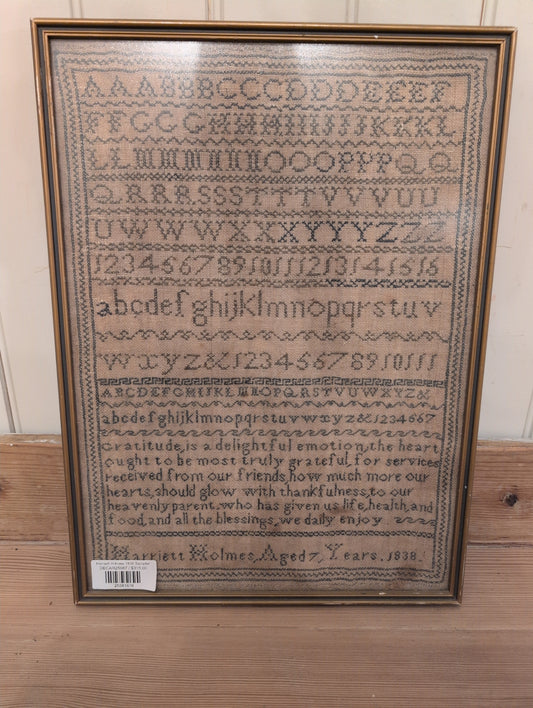 AAABBBCCCDDDEEEF
FFGGGHHHIIIJJJKKKL
LLMMMNNNOOOPPPQQ
QRRRSSSTTTVVVUU
UWWWXXXYYYZZZ
12345678910111213141516
abcdefghijklmnopqrstuv
wxyz&1234567891011
ABCDEFGHIJKLMNOPQRSTVUWXYZ&
abcdefghijklmnopqrstuvwxyz&1234567
Gratitude, is a delightful emotion, the heart
ought to be most truly grateful, for services
received from our friends, how much more our
hearts, should glow with thankfulness, to our
heavenly parent, who has given us life, health, and
food, and all the blessings, we daily enjoy
Harriett Holmes, Aged 7, Years. 1838.